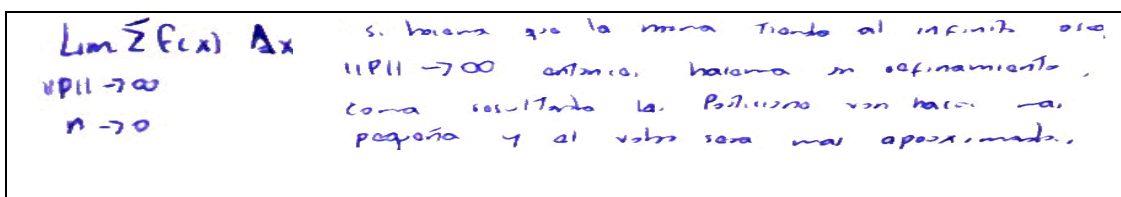 Lim Σ f(x) Δx
||P|| → ∞
n → 0
si hacemos que la norma tienda al infinito osea
||P|| → ∞ entonces hacemos un refinamiento,
como resultado las particiones van hacer mas
pequeña y el valor sera mas aproximado.